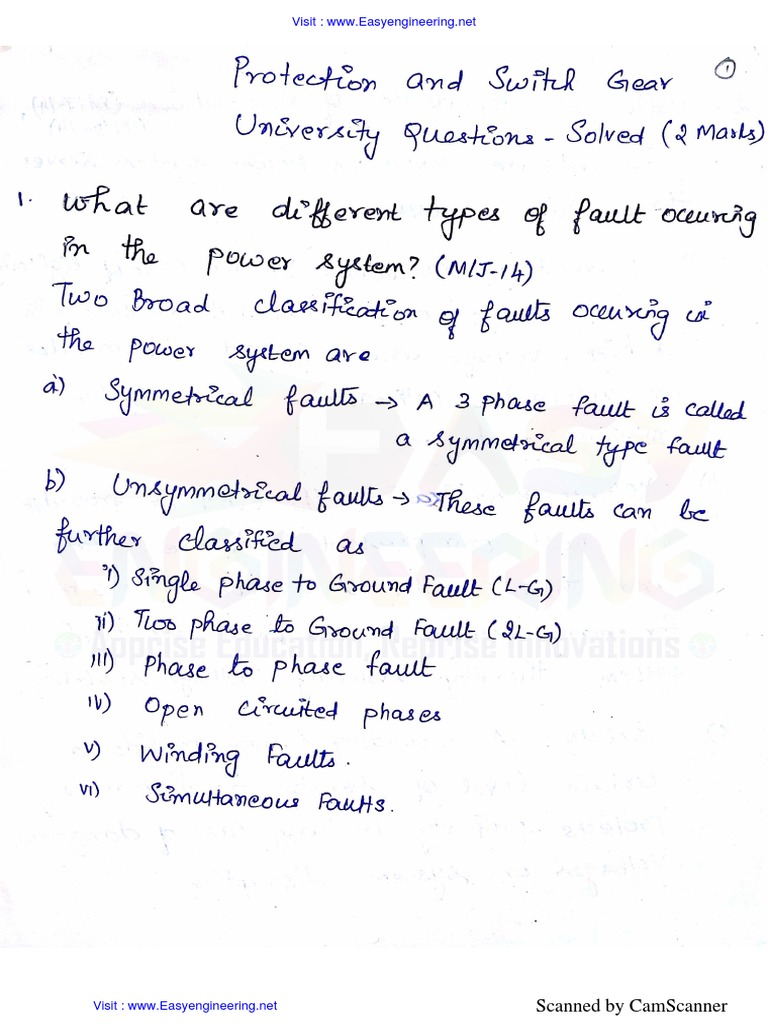 Visit : www.Easyengineering.net
①
Protection and Switch Gear
University Questions - Solved (2 Marks)
1. What are different types of fault occuring
in the power system? (M/J-14)
Two Broad classification of faults occuring in
the power system are
a) Symmetrical faults → A 3 phase fault is called
a symmetrical type fault
b) Unsymmetrical faults → These faults can be
further classified as
i) Single phase to Ground Fault (L-G)
ii) Two phase to Ground Fault (2L-G)
iii) Phase to phase fault
iv) Open circuited phases
v) Winding Faults.
vi) Simultaneous Faults.
EASY
ENGINEERING
Apprise Education, Reprise Innovations
Visit : www.Easyengineering.net
Scanned by CamScanner